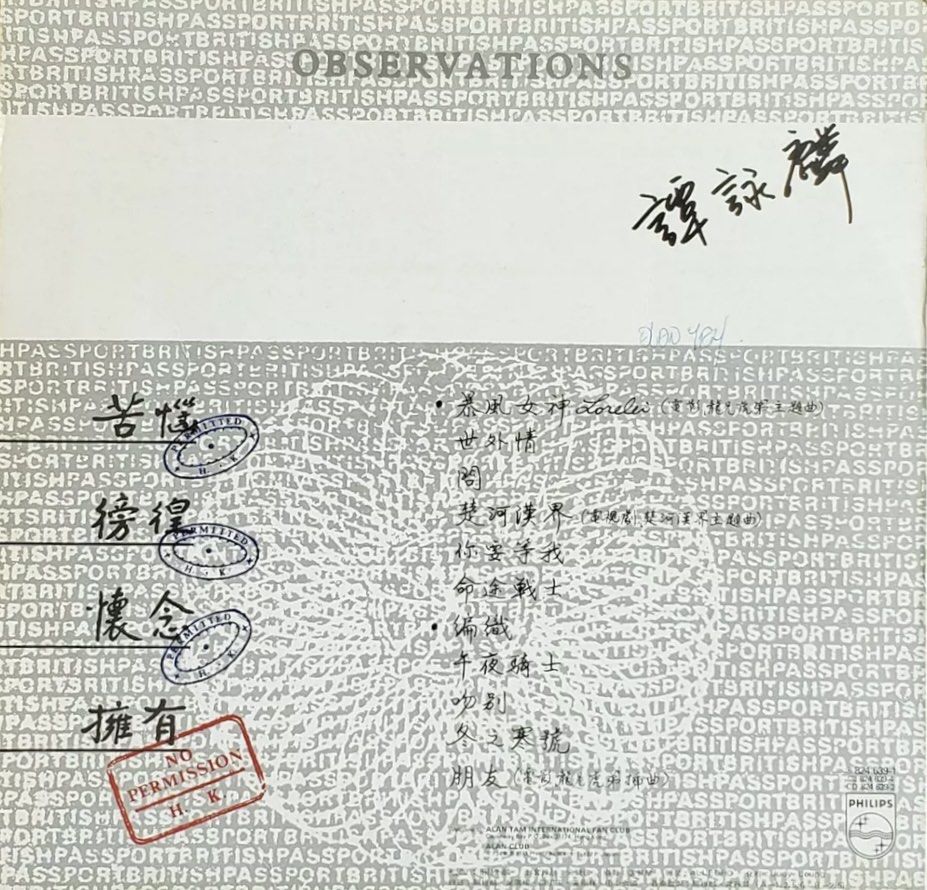 OBSERVATIONS
譚詠麟
苦惱
PERMITTED
H.K
徬徨
PERMITTED
H.K
懷念
PERMITTED
H.K
擁有
NO
PERMISSION
H. K.
• 暴風女神Lorelei (電影龍兄虎弟主題曲)
世外情
問
楚河漢界 (電視劇楚河漢界主題曲)
你要等我
命途戰士
• 編織
午夜騎士
吻別
冬之寒號
朋友 (電影龍兄虎弟插曲)
824 639-1
PHILIPS
ALAN TAM INTERNATIONAL FAN CLUB
ALAN CLUB